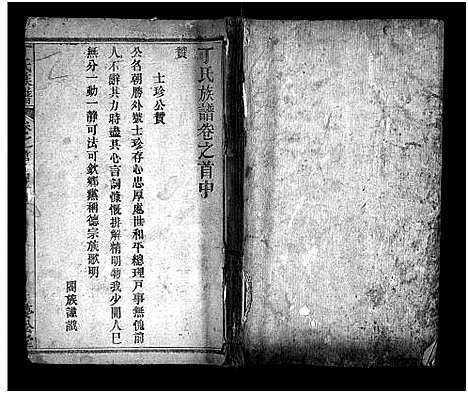 丁氏族譜卷之首中
贊
士珍公贊
公名朝勝外號士珍存心忠厚處世和平總理戶事無愧前
人不辭其力時盡其心言詞慷慨排解精明物我少間人已
無分一動一靜可法可欽鄉黨稱德宗族歌明
闔族謹識